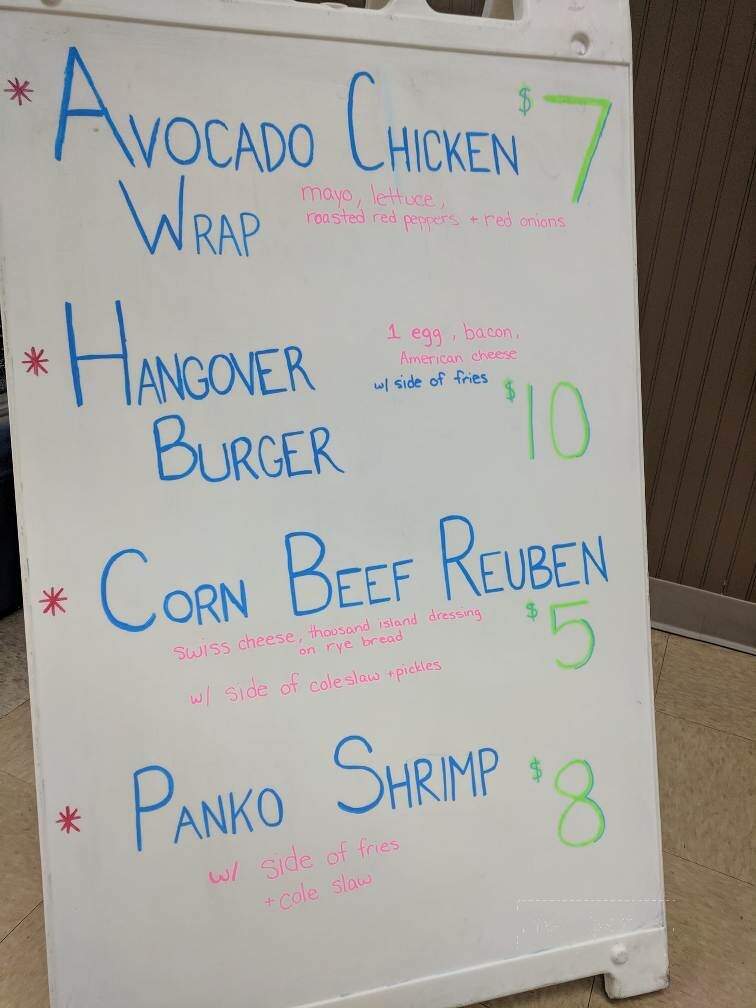 * AVOCADO CHICKEN $7
WRAP
mayo, lettuce,
roasted red peppers + red onions
* HANGOVER
BURGER
1 egg, bacon,
American cheese
w/ side of fries
$10
* CORN BEEF REUBEN
$5
swiss cheese, thousand island dressing
on rye bread
w/ side of coleslaw + pickles
* PANKO SHRIMP $8
w/ side of fries
+ cole slaw